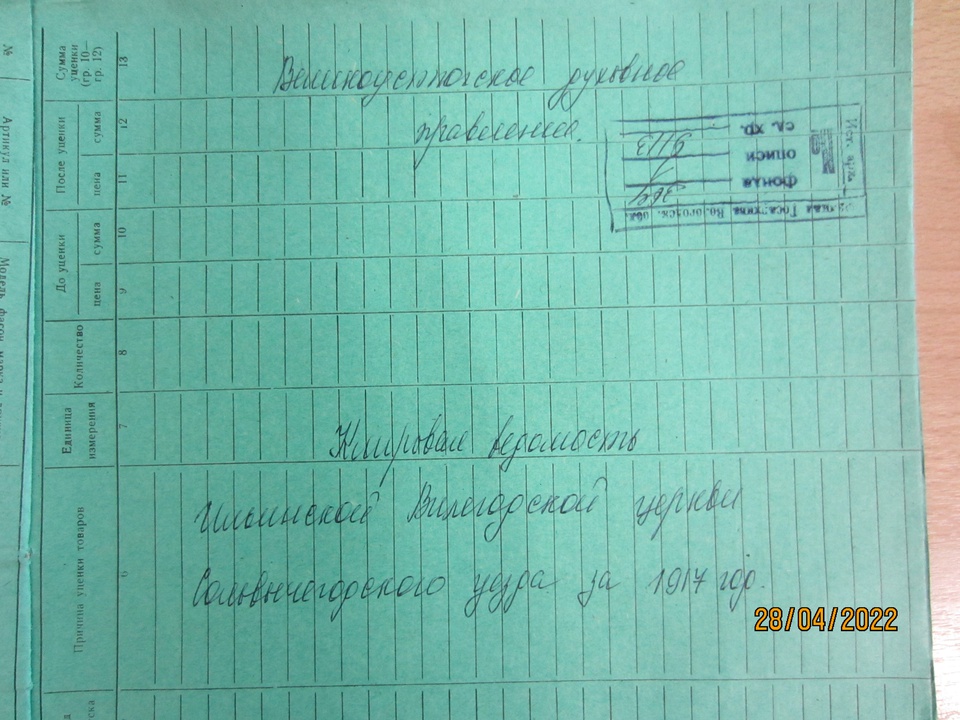 Великоустюгское духовное
правление.
Ист. арх.
ед. хр. 9113
описи 1
фонда 364
Госархива Вологодск. обл.
Клировая ведомость
Ильинской Вилегодской церкви
Сольвычегодского уезда за 1917 год.
28/04/2022
Сумма уценки (гр. 10— гр. 12)
13
После уценки
сумма
12
цена
11
До уценки
сумма
10
цена
9
Количество
8
Единица измерения
7
Причина уценки товаров
6
№
Артикул или №